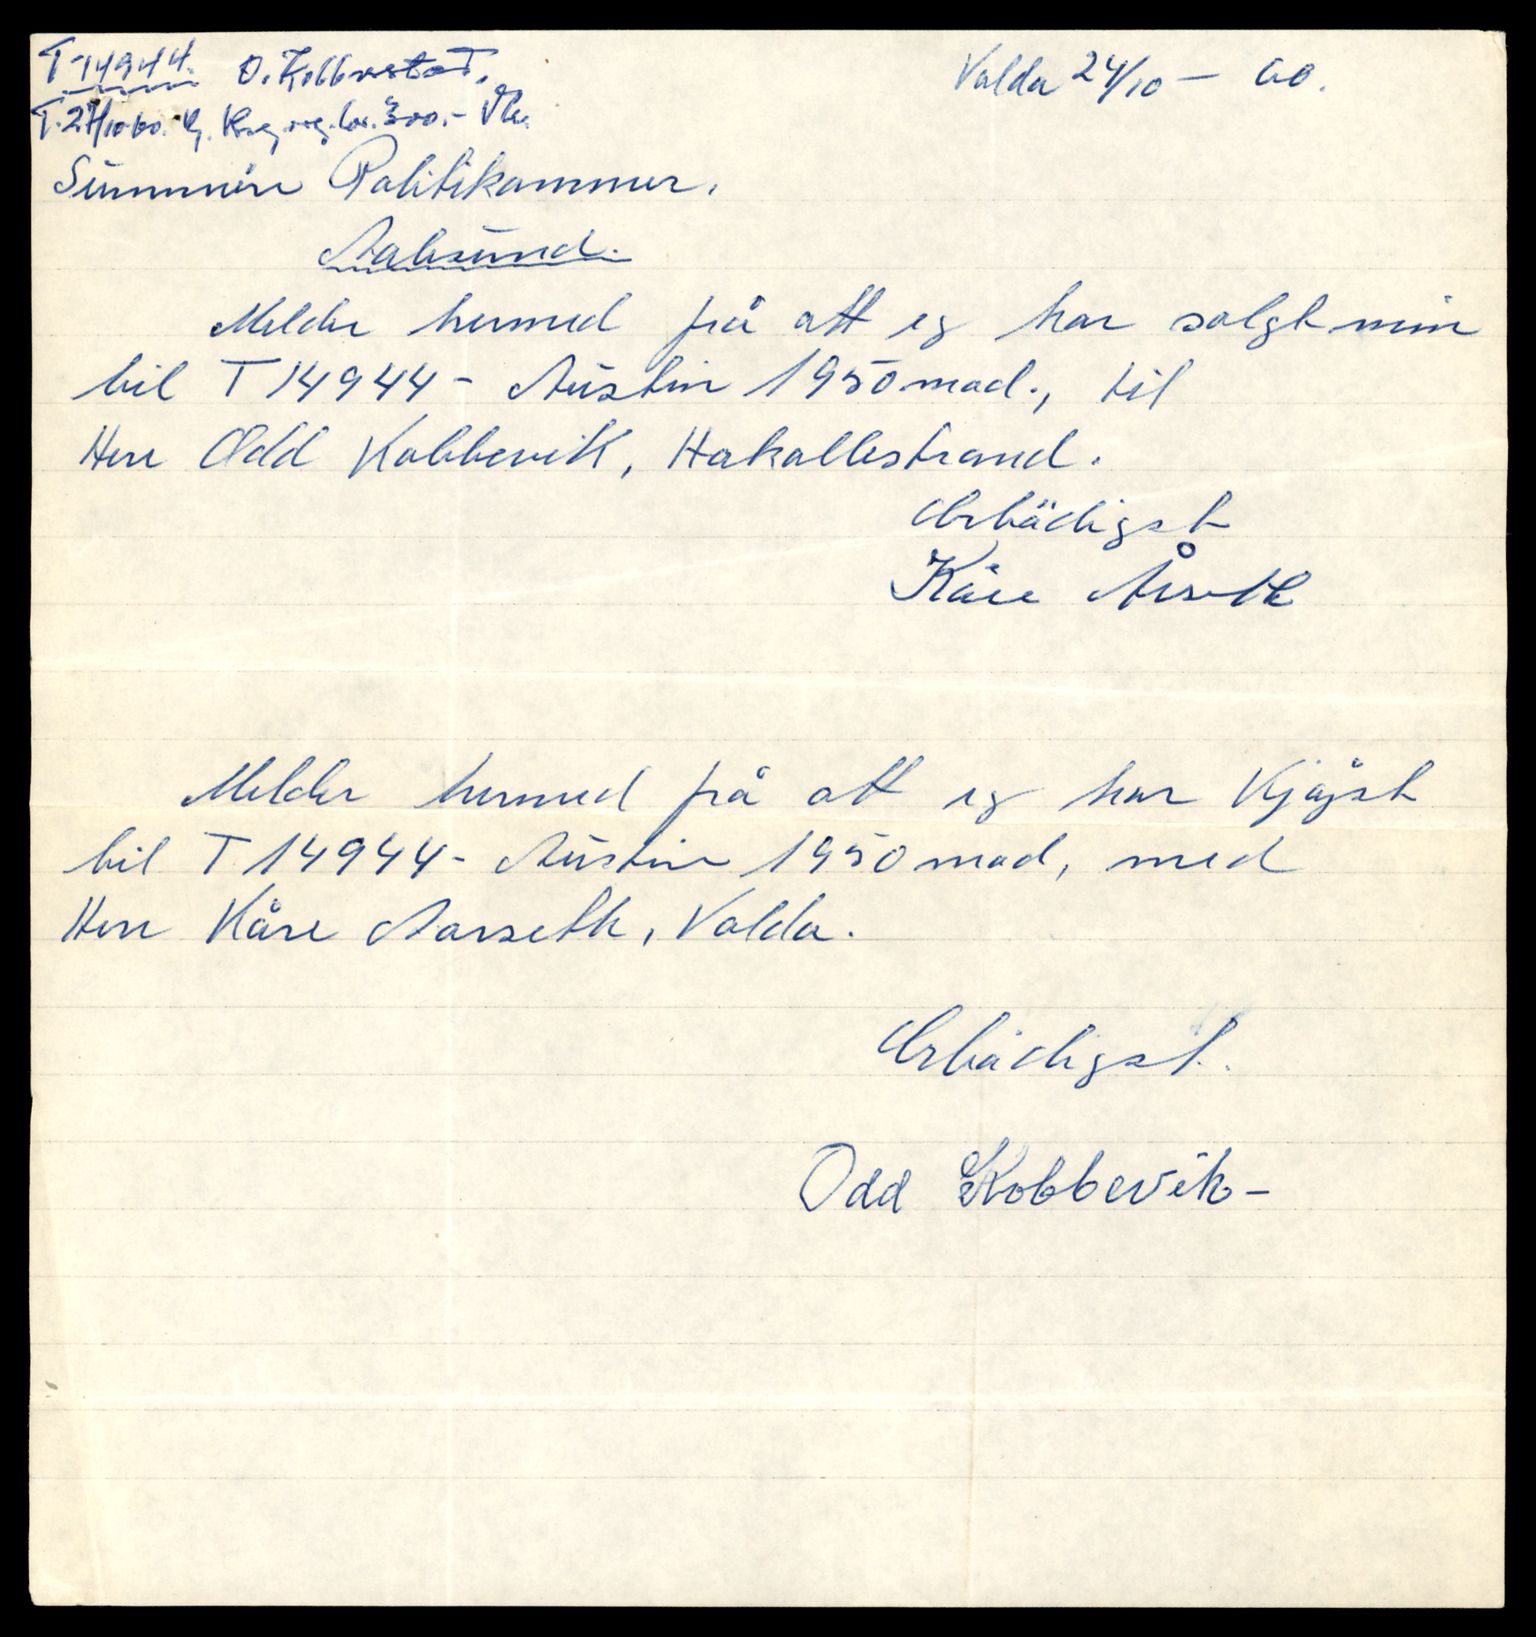 T-14944.
Volda 24/10 - 60.
T. 27/10 60.
Sunnmøre Politikammer.
Aalesund.
Melder hermed frå att eg har solgt min
bil T 14944 - Austin 1950 mod., til
Herr Odd Kobbevik, Hakallestrand.
Ærbødigst
Kåre Årseth
Melder hermed frå att eg har Kjøpt
bil T 14944 - Austin 1950 mod, med
Herr Kåre Aarseth, Volda.
Ærbødigst.
Odd Kobbevik -